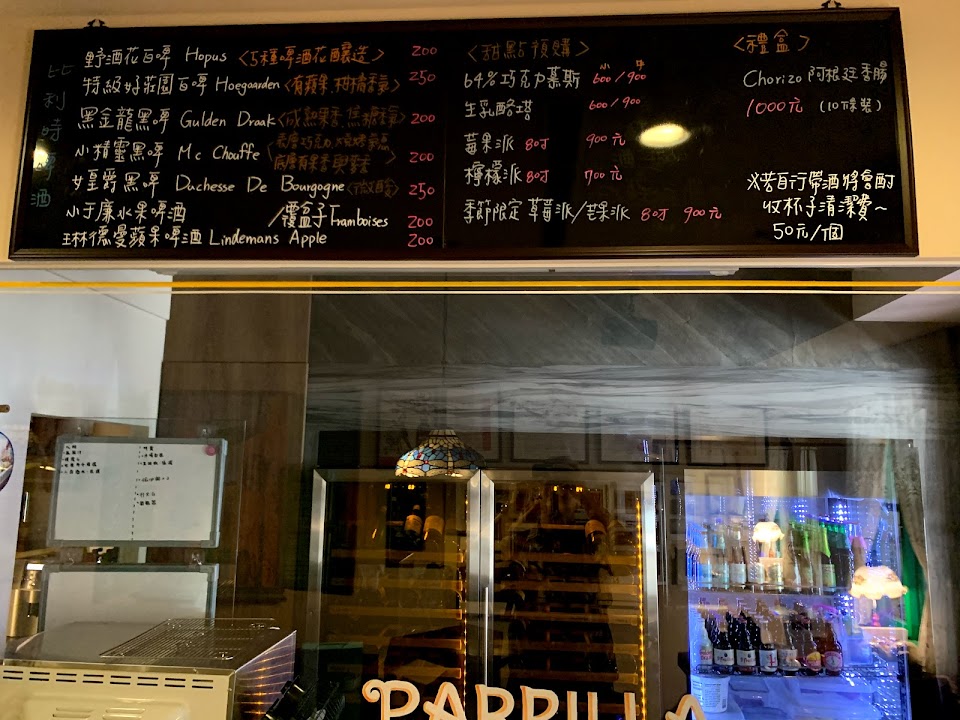 比利時啤酒
野酒花百啤 Hopus <5種啤酒花釀造> 200
特級好莊園百啤 Hoegaarden <有蘋果、甜橘香氣> 250
黑金龍黑啤 Gulden Draak <成熟果香、焦糖香氣> 200
小精靈黑啤 Mc Chouffe 200
女皇爵黑啤 Duchesse De Bourgogne <微酸> 250
小于廉水果啤酒 /覆盆子 Framboises 200
琳德曼蘋果啤酒 Lindemans Apple 200
<甜點預購>
小 中
64% 巧克力慕斯 600/900
生乳酪塔 600/900
莓果派 8吋 900元
檸檬派 8吋 700元
季節限定 草莓派/芒果派 8吋 900元
<禮盒>
Chorizo 阿根廷香腸
1000元 (10條裝)
※若自行帶酒將會酌
收杯子清潔費~
50元/個
PARRILLA